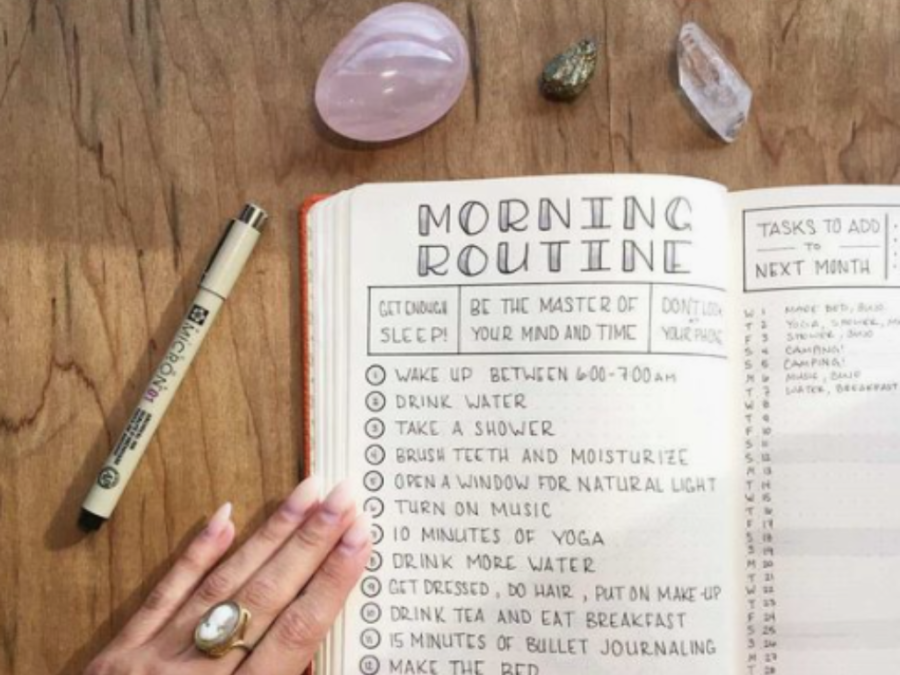 MORNING
ROUTINE
GET ENOUGH
SLEEP!
BE THE MASTER OF
YOUR MIND AND TIME
DON'T LOOK
YOUR PHONE
① WAKE UP BETWEEN 6:00-7:00 AM
② DRINK WATER
③ TAKE A SHOWER
④ BRUSH TEETH AND MOISTURIZE
⑤ OPEN A WINDOW FOR NATURAL LIGHT
TURN ON MUSIC
10 MINUTES OF YOGA
⑧ DRINK MORE WATER
⑨ GET DRESSED, DO HAIR, PUT ON MAKE-UP
⑩ DRINK TEA AND EAT BREAKFAST
⑪ 15 MINUTES OF BULLET JOURNALING
⑫ MAKE THE BED
TASKS TO ADD
TO
NEXT MONTH
W 1 MAKE BED, BUJO
T 2 YOGA, SHOWER,
F 3 SHOWER, BUJO
S 4 CAMPING!
S 5 CAMPING!
M 6 MUSIC, BUJO
T 7 WATER, BREAKFAST
W 8
T 9
F 10
S 11
S 12
M 13
T 14
W 15
T 16
F 17
S 18
S 19
M 20
T 21
W 22
T 23
F 24
S 25
S 26
M 27
T 28
MICRON 01